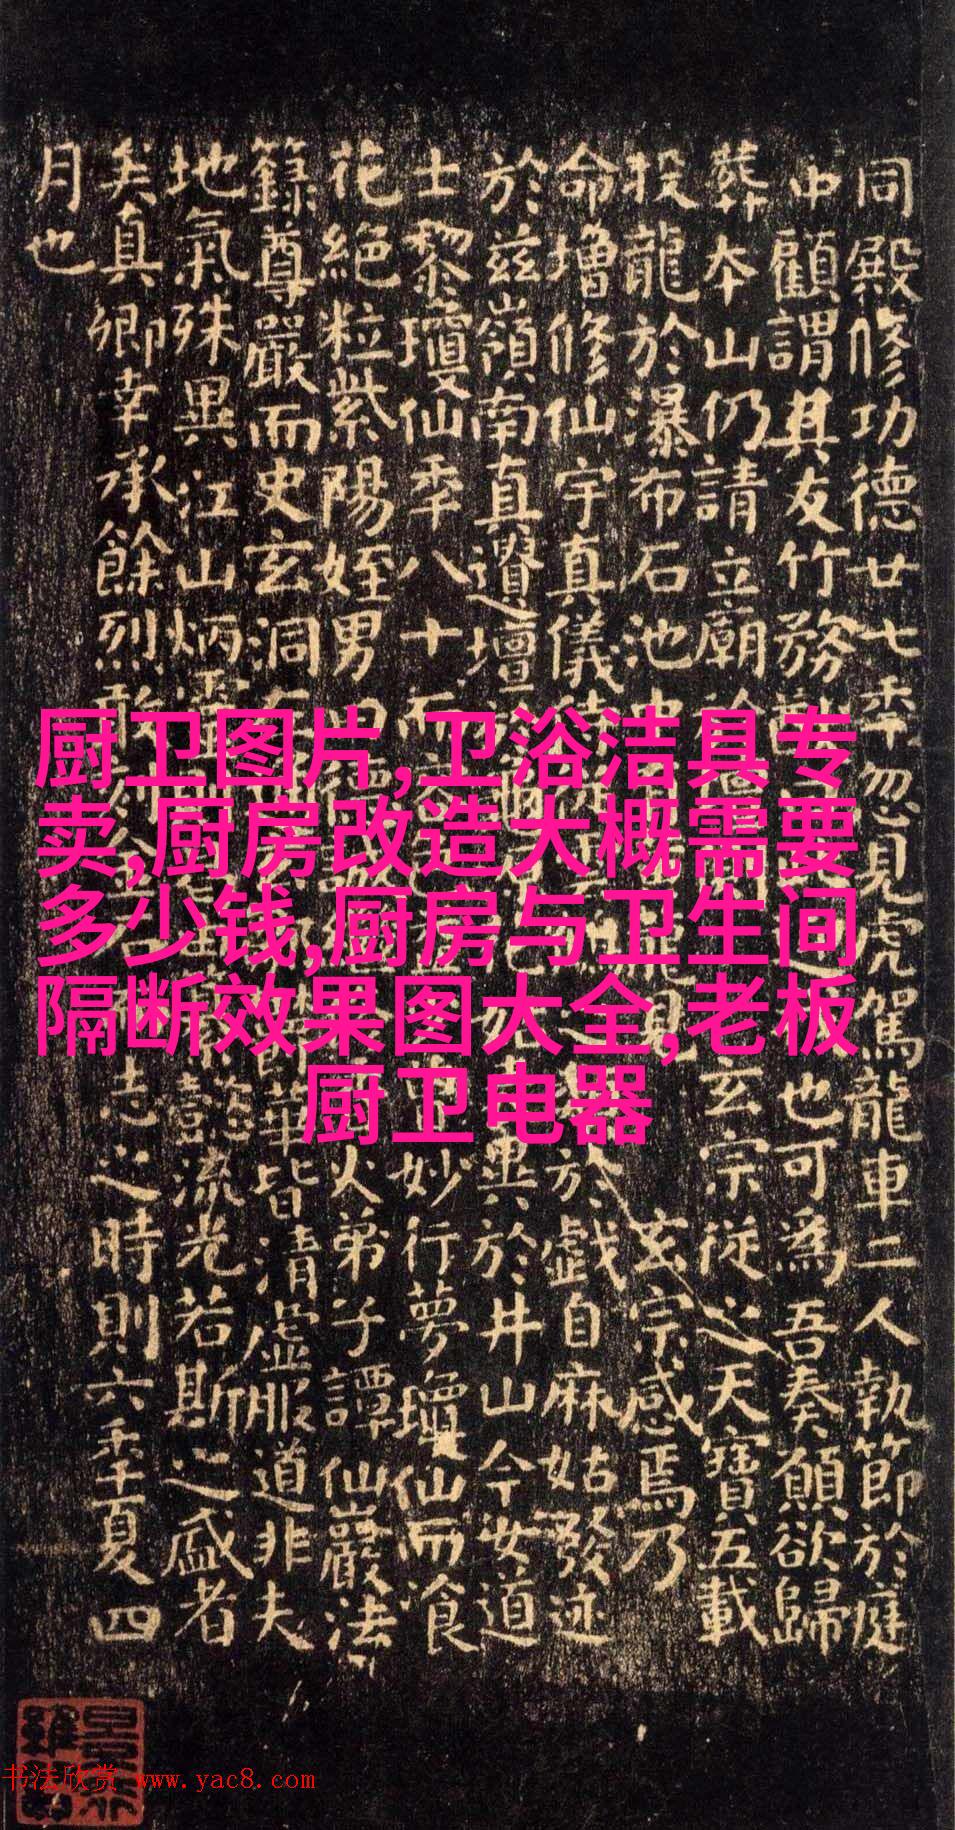 同殿修功德廿七年忽見虎駕龍車二人執節於庭
中顧謂其友竹務也可為吾奏願欲歸
葬本山仍請立廟玄宗從之天寶五載
投龍於瀑布石池見玄宗感焉乃
命增修仙宇真儀於戲自麻姑發迹
於兹嶺南真遺壇異於井山今女道
士黎瓊仙年八十而妙行夢瓊仙而飡
花絕粒紫陽姪男曰火弟子譚仙巖法
籙尊嚴而史玄洞華皆清虛服道非夫
地氣殊異江山炳靈懿流光若斯之盛者
矣真卿幸承餘烈敢志之時則六年夏四
月也
厨卫图片,卫浴洁具专
卖,厨房改造大概需要
多少钱,厨房与卫生间
隔断效果图大全,老板
厨卫电器
书法欣赏 www.yac8.com